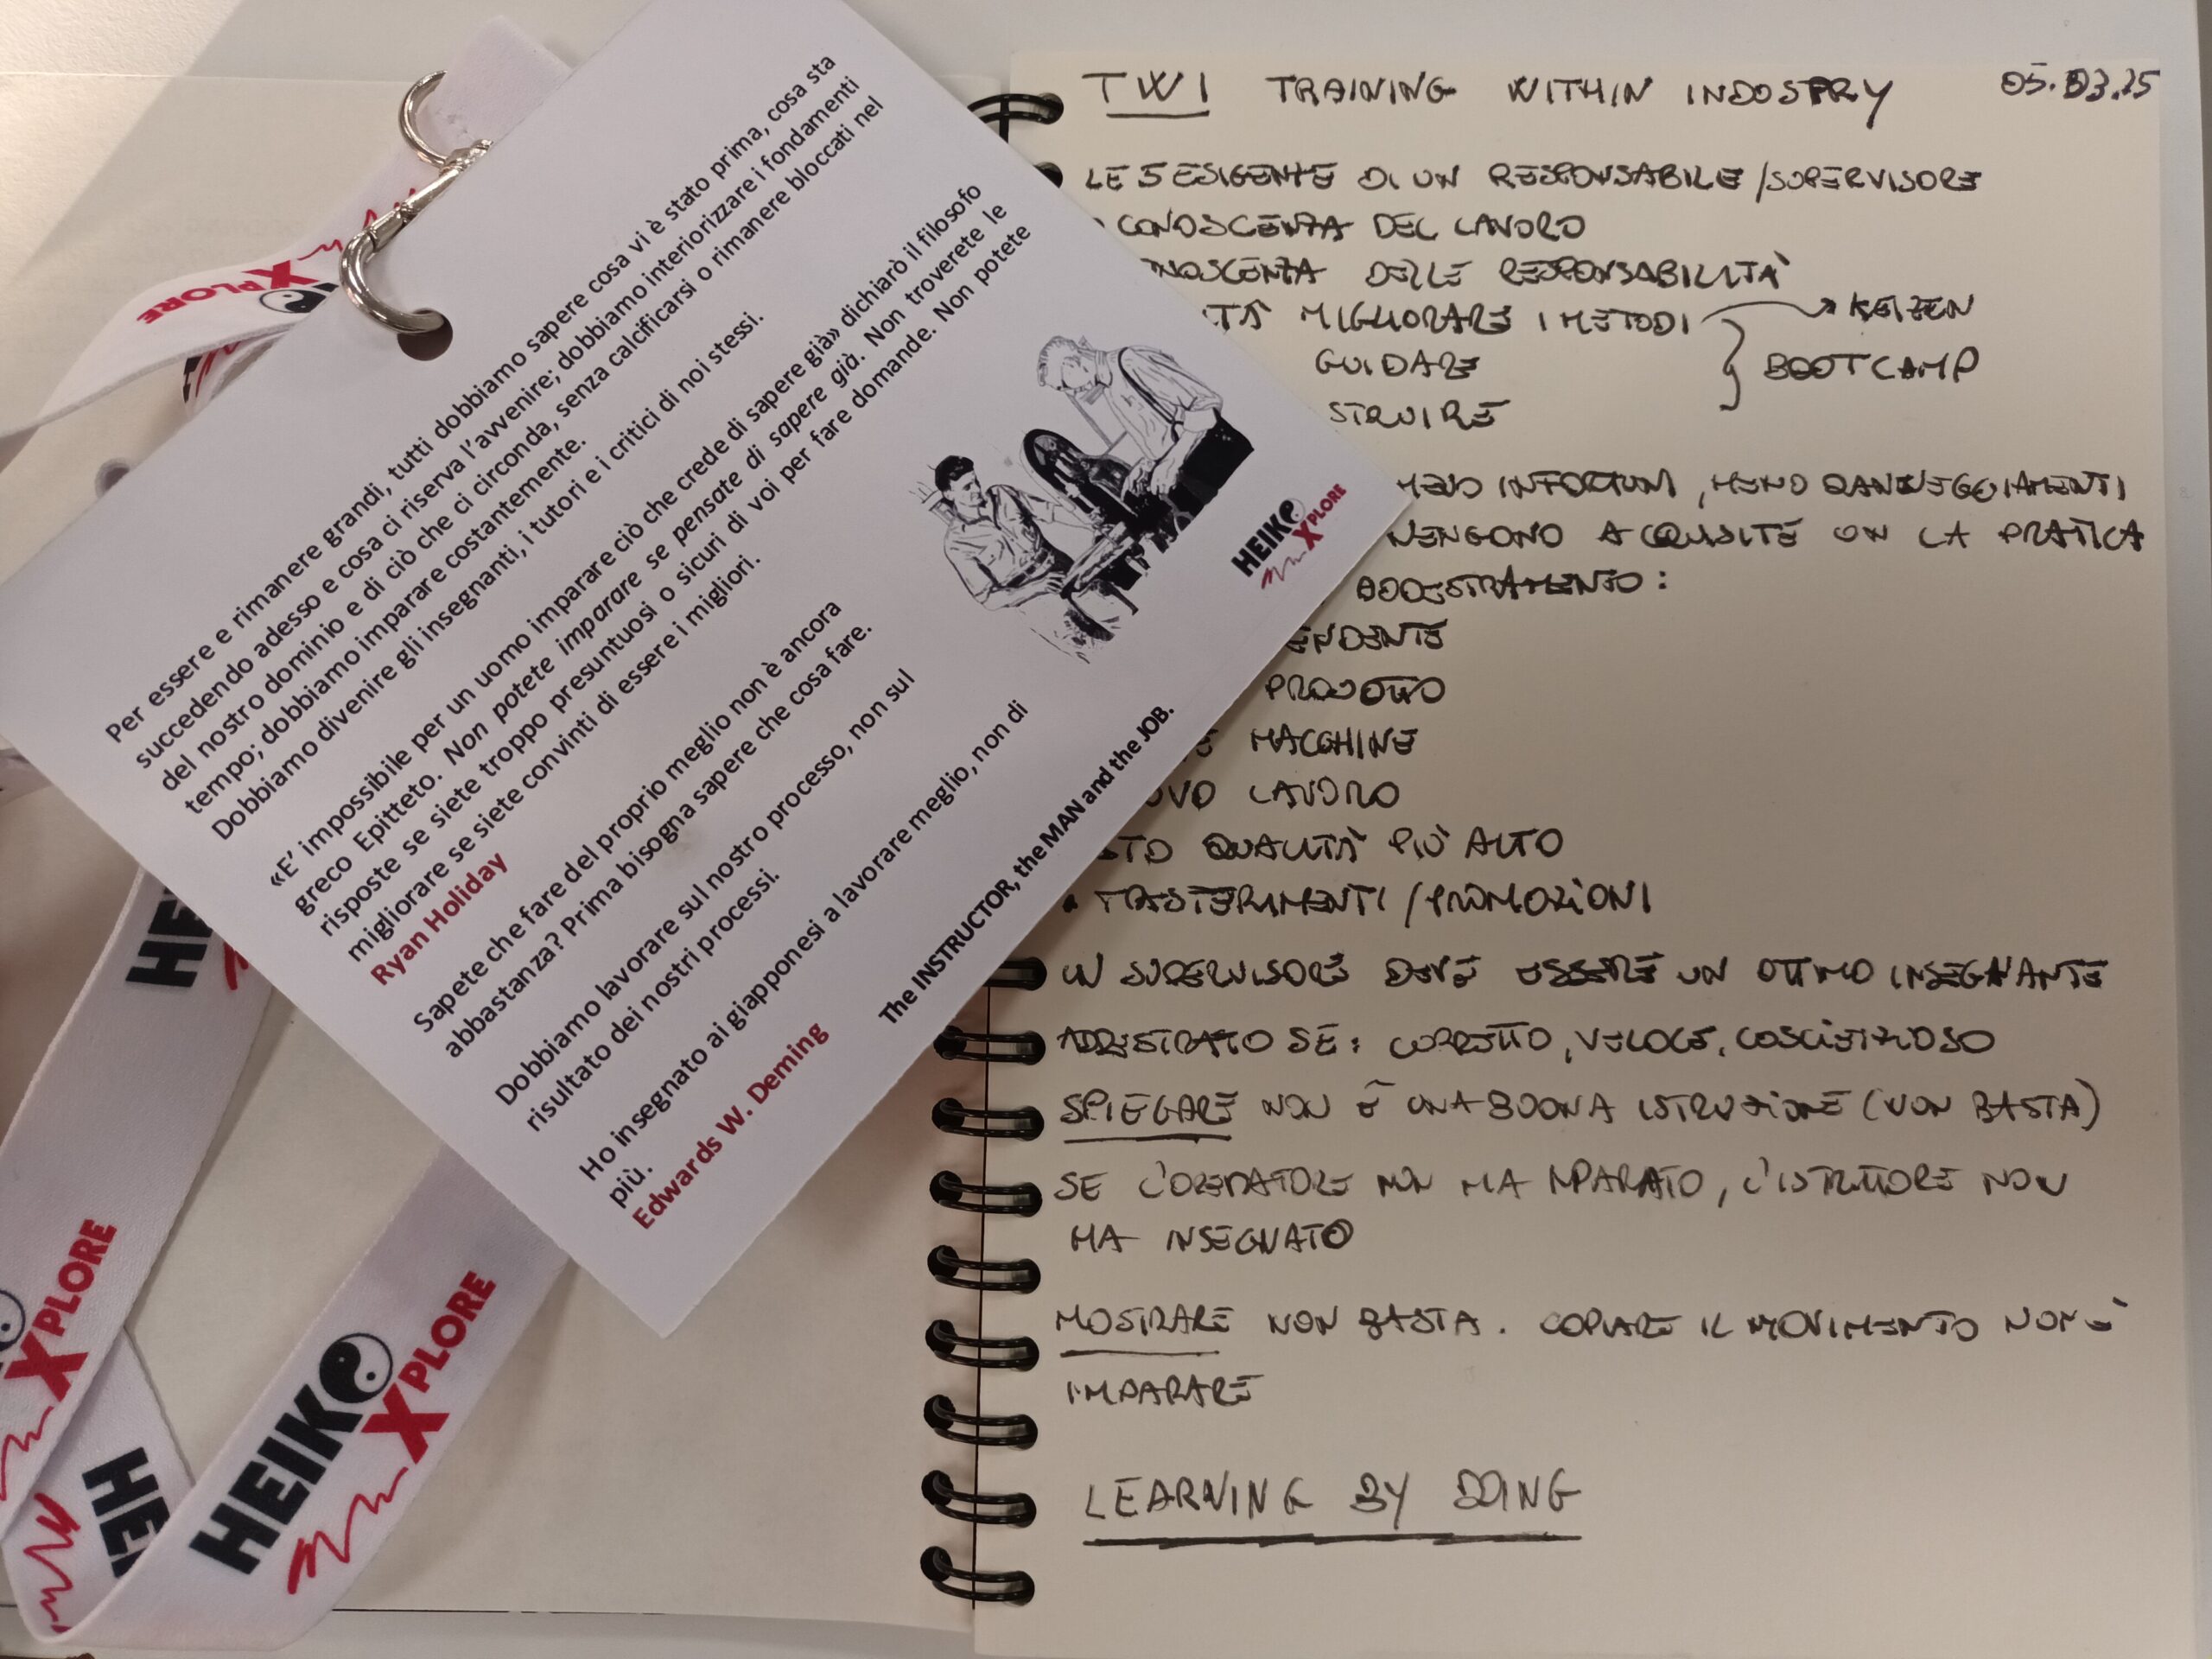 Per essere e rimanere grandi, tutti dobbiamo sapere cosa vi è stato prima, cosa sta
succedendo adesso e cosa ci riserva l'avvenire; dobbiamo interiorizzare i fondamenti
del nostro dominio e di ciò che ci circonda, senza calcificarsi o rimanere bloccati nel
tempo; dobbiamo imparare costantemente.
Dobbiamo divenire gli insegnanti, i tutori e i critici di noi stessi.
«E' impossibile per un uomo imparare ciò che crede di sapere già» dichiarò il filosofo
greco Epitteto. Non potete imparare se pensate di sapere già. Non troverete le
risposte se siete troppo presuntuosi o sicuri di voi per fare domande. Non potete
migliorare se siete convinti di essere i migliori.
Ryan Holiday
Sapete che fare del proprio meglio non è ancora
abbastanza? Prima bisogna sapere che cosa fare.
Dobbiamo lavorare sul nostro processo, non sul
risultato dei nostri processi.
Ho insegnato ai giapponesi a lavorare meglio, non di
più.
Edwards W. Deming
The INSTRUCTOR, the MAN and the JOB.
HEIKO
XPLORE
HEIKO
XPLORE
XPLORE
XPLORE
HE
HE
TWI TRAINING WITHIN INDOSTRY 05.03.25
LE 5 ESIGENZE DI UN RESPONSABILE/SUPERVISORE
CONOSCENZA DEL LAVORO
NOSCENZA DELLE RESPONSABILITÀ
ITÀ MIGLIORARE I METODI → KEIZEN
GUIDARE } BOOTCAMP
STRUIRE
MENO INFORTUNI, MENO DANNEGGIAMENTI
VENGONO ACQUISITE CON LA PRATICA
ADDESTRAMENTO:
ENDENTE
PRODOTTO
E MACCHINE
OVO LAVORO
TO QUALITÀ PIÙ ALTO
• TRASFERIMENTI/PROMOZIONI
UN SUPERVISORE DEVE ESSERE UN OTTIMO INSEGNANTE
ADDESTRATO SE: CORRETTO, VELOCE, COSCIENZIOSO
SPIEGARE NON È UNA BUONA ISTRUZIONE (NON BASTA)
SE L'OPERATORE NON HA IMPARATO, L'ISTRUTTORE NON
HA INSEGNATO
MOSTRARE NON BASTA. COPIARE IL MOVIMENTO NON È
IMPARARE
LEARNING BY DOING